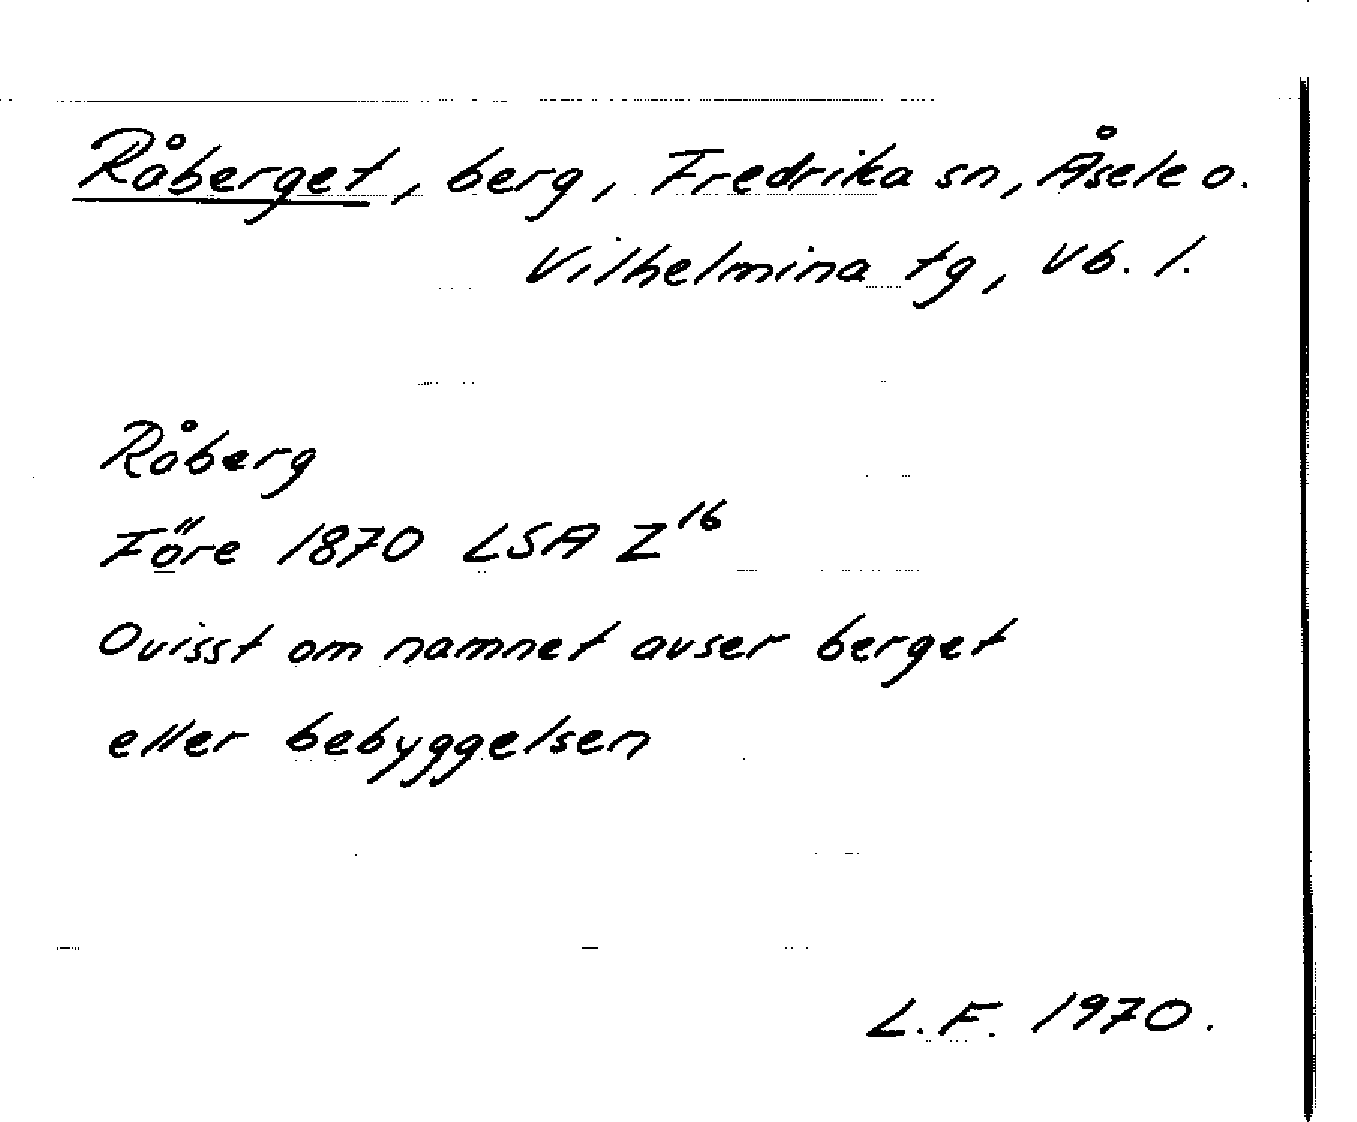 Råberget, berg, Fredrika sn, Åsele o.
Vilhelmina tg, Vb. l.
Råberg
Före 1870 LSA Z¹⁶
Ovisst om namnet avser berget
eller bebyggelsen
L.F. 1970.